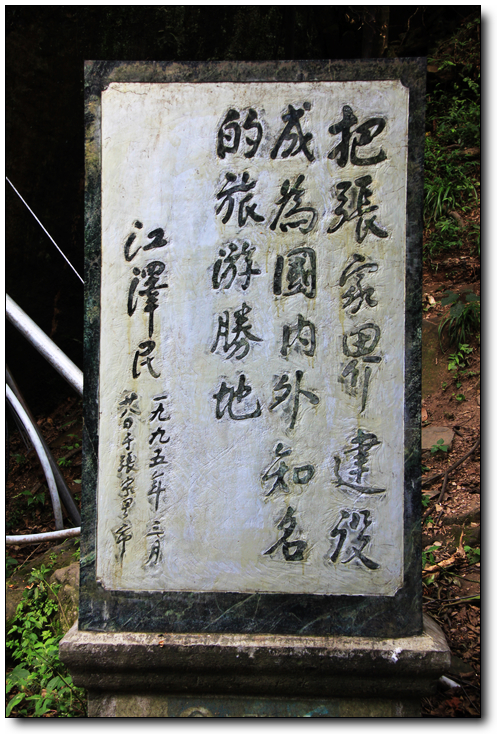 把張家界建设
成為國内外知名
的旅游勝地
江澤民
一九九五年三月
日于張家界市